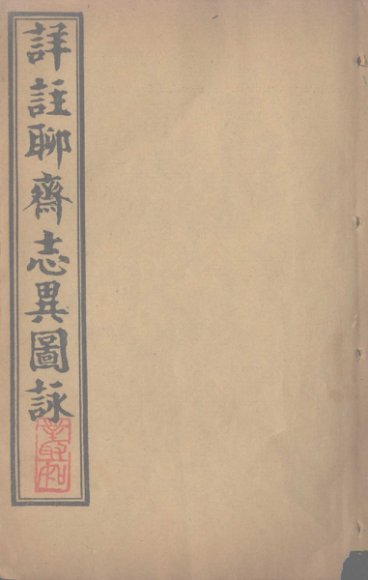 詳註聊齋志異圖詠